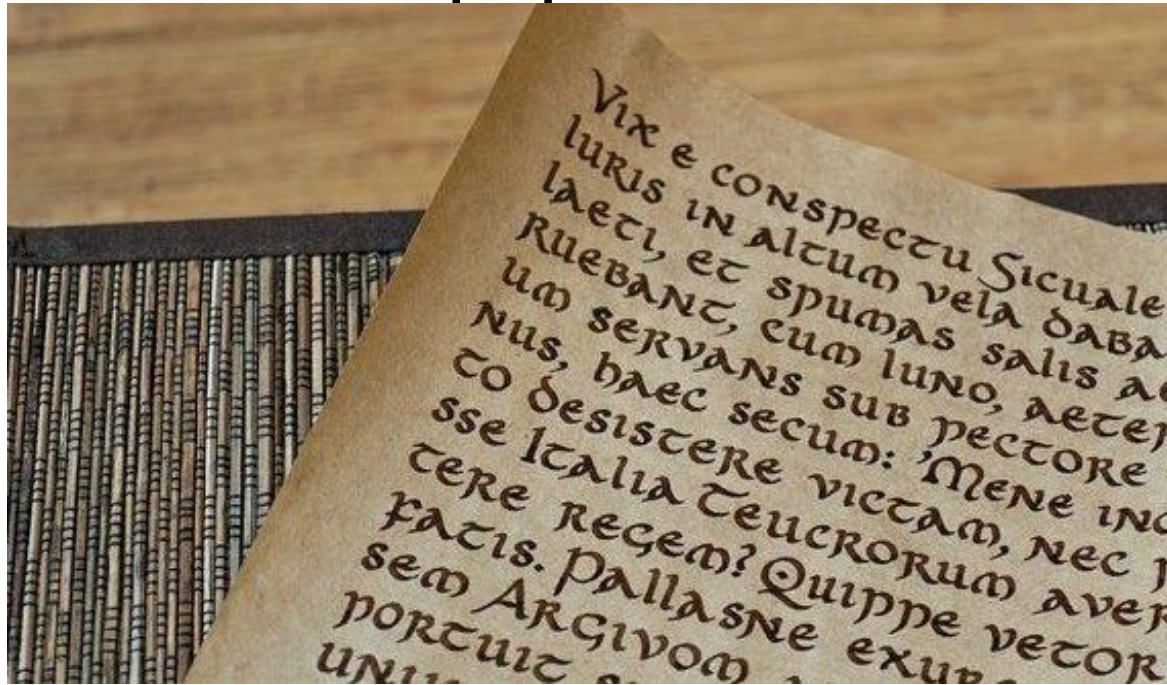 Vix e conspectu Sicuale
luris in altum vela daba
laeti, et spumas salis ae
ruebant, cum luno, aeter
um servans sub pectore
nus, haec secum: 'Mene inc
to desistere victam, nec
sse Italia Teucrorum aver
tere regem? Quippe vetor
fatis. Pallasne exur
sem Argivom
portuit